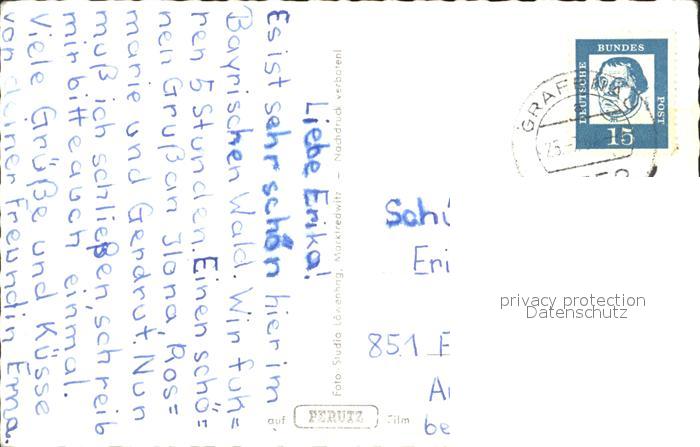 Liebe Erika!
Es ist sehr schön hier im
Bayrischen Wald. Wir fuh=
ren 5 Stunden. Einen schö=
nen Gruß an Ilona, Ros=
marie und Gerdrut. Nun
muß ich schließen, schreib
mir bitte auch einmal.
Viele Grüße und Küsse
von deiner Freundin Erma.
Foto Studio Löwenhag, Marktredwitz – Nachdruck verboten!
auf PERUTZ Film
DEUTSCHE BUNDES POST
15
GRAFENAU
25.
Schü
Eri
851 F
A
be
privacy protection
Datenschutz